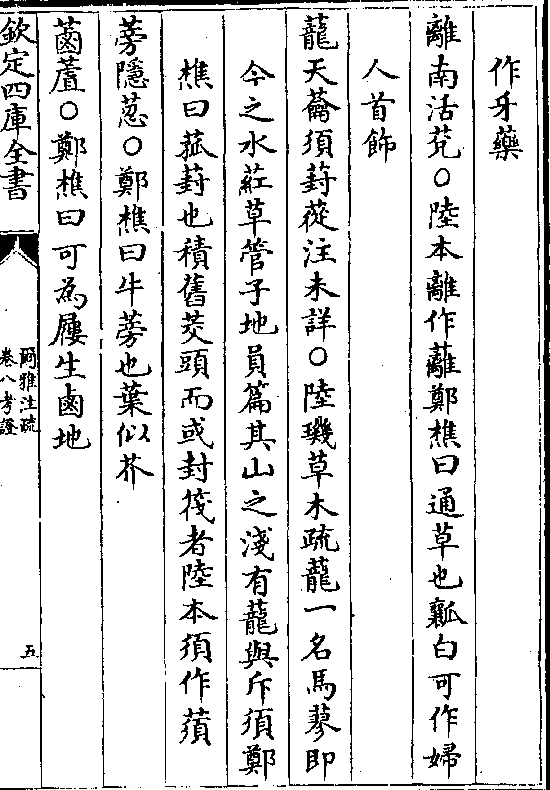 作牙藥
離南活莌○陸本離作蘺鄭樵曰通草也瓤白可作婦
人首飾
蘢天蘥須葑蓯注未詳○陸璣草木疏蘢一名馬蓼即
今之水葒草管子地員篇其山之淺有蘢與斥須鄭
樵曰菰葑也積舊茭頭而成封筏者陸本須作蕦
蒡隱荵○鄭樵曰牛蒡也葉似芥
菡蘆○鄭樵曰可為屨生鹵地
欽定四庫全書
爾雅注疏
卷八考證
五